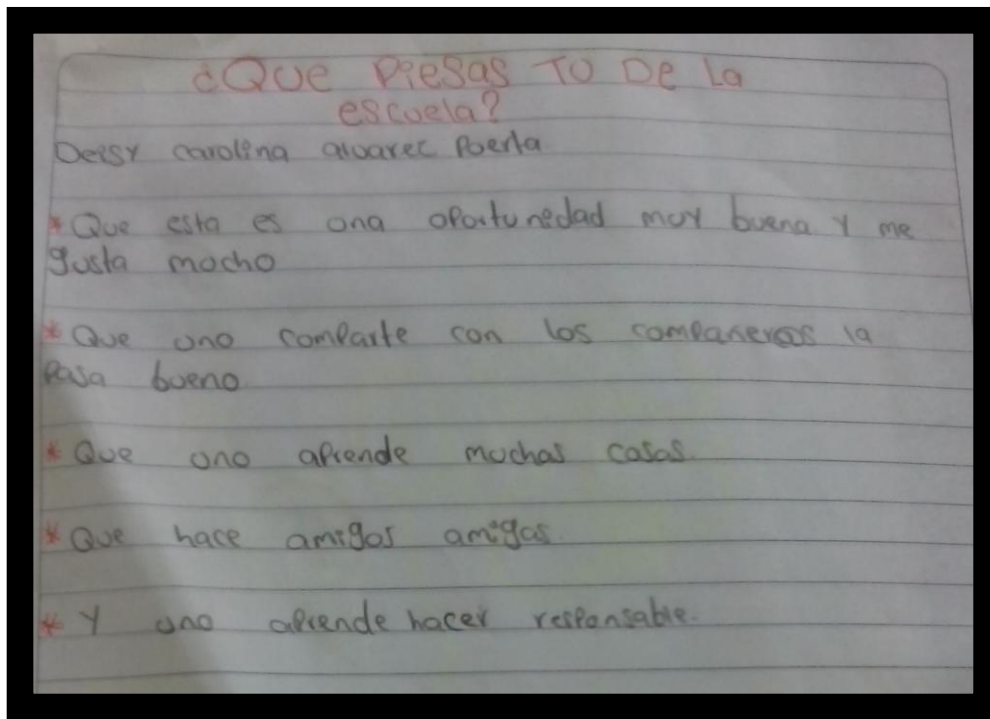 ¿QUE PIESAS TU DE La
escuela?
Deisy carolina alvarez Puerta
* Que esta es una oportunedad muy buena y me
gusta mucho
* Que uno comparte con los companeros la
Pasa bueno
* Que uno aprende muchas cosas.
* Que hace amigos amigas.
* Y uno aprende hacer responsable.